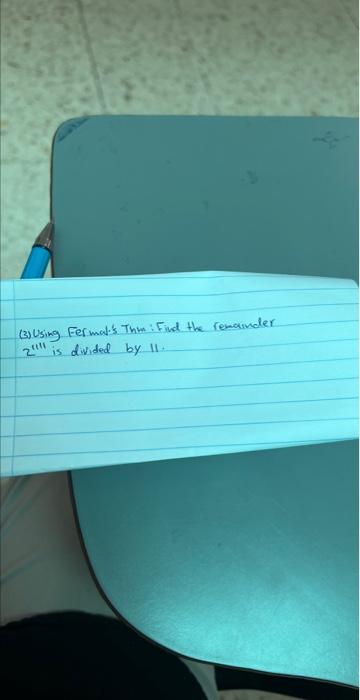 (3) Using Fermat's Thm : Find the remainder
2¹¹¹¹ is divided by 11.